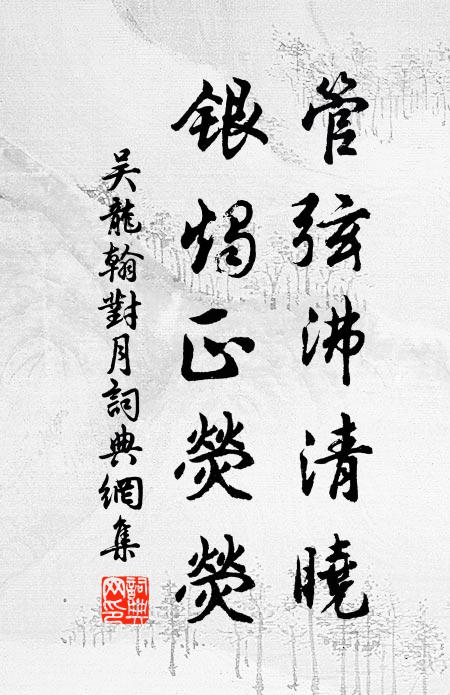 管弦沸清曉
銀燭正熒熒
吴龍翰對月詞典網集
詞典網印